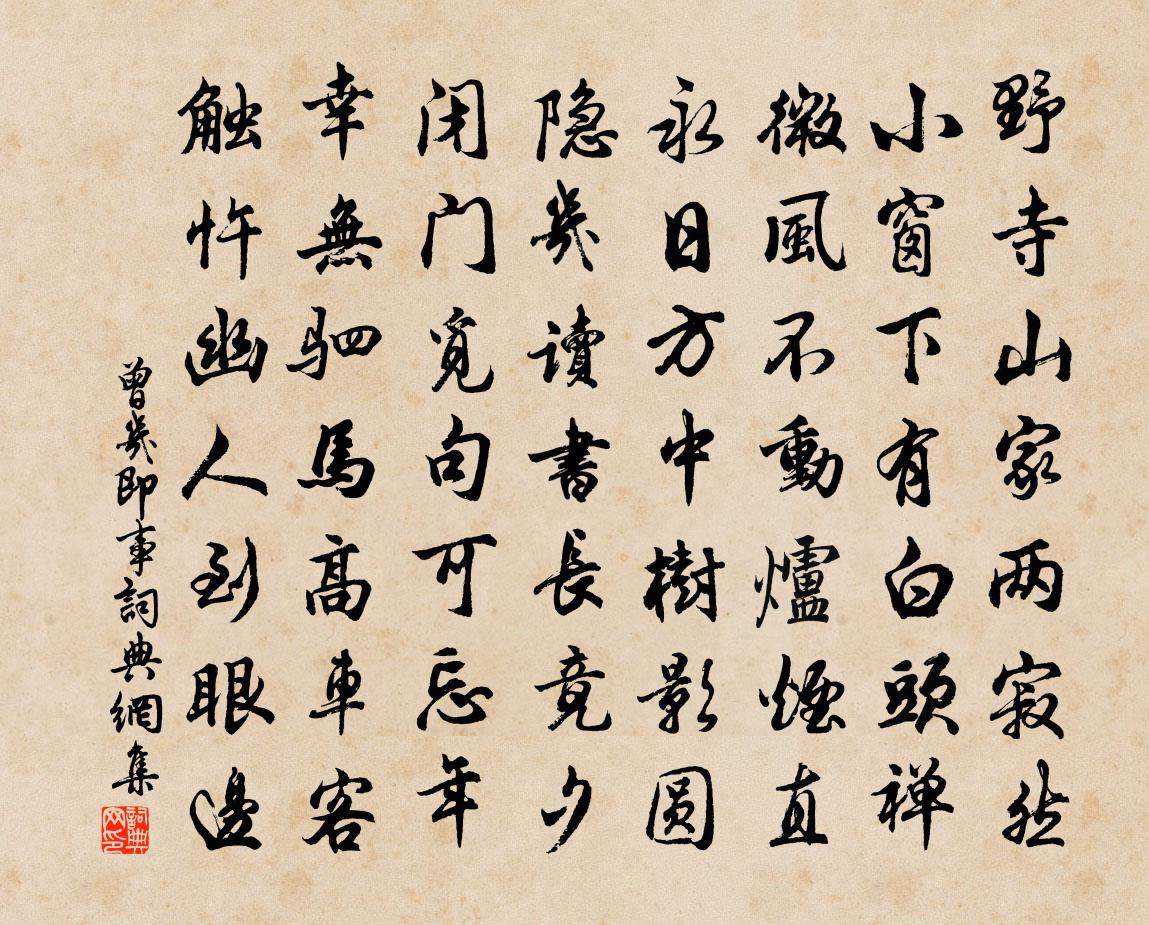 野寺山家两寂然
小窗下有白頭禅
微風不動爐煙直
永日方中樹影圓
隐幾讀書長竟夕
闭门覓句可忘年
幸無驷馬高車客
触忤幽人到眼邊
曾幾即事詞典網集
詞典网印